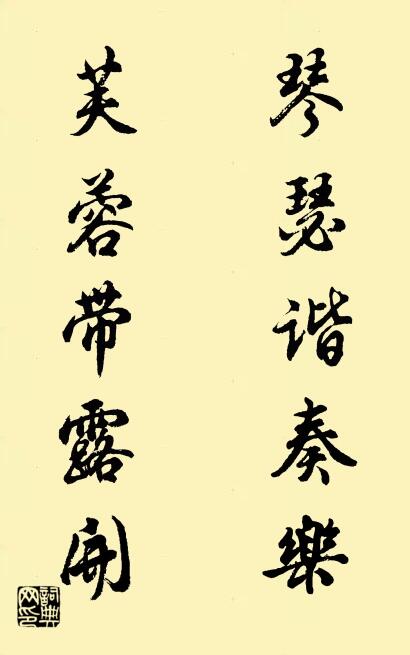 琴瑟谐奏樂
芙蓉带露開
詞典网印